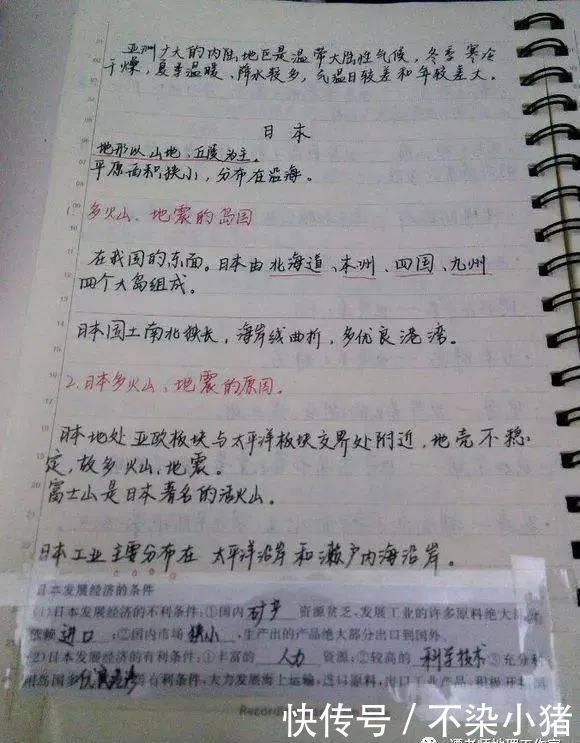 亚洲广大的内陆地区是温带大陆性气候，冬季寒冷
干燥，夏季温暖、降水较多，气温日较差和年较差大。
日本
地形以山地、丘陵为主。
平原面积狭小，分布在沿海。
1.多火山、地震的岛国
在我国的东面。日本由北海道、本州、四国、九州
四个大岛组成。
日本国土南北狭长，海岸线曲折，多优良港湾。
2.日本多火山、地震的原因。
日本地处亚欧板块与太平洋板块交界处附近，地壳不稳
定，故多火山、地震。
富士山是日本著名的活火山。
日本工业主要分布在太平洋沿岸和濑户内海沿岸。
日本发展经济的条件
(1)日本发展经济的不利条件：①国内矿产资源贫乏、发展工业的许多原料绝大
依赖进口；②国内市场狭小，生产出的产品绝大部分出口到国外。
(2)日本发展经济的有利条件：①丰富的人力资源；②较高的科学技术③充分利
用岛国多优良港湾的有利条件，大力发展海上运输，进口原料，出口工业产品，积极开拓
Record
快传号／不染小猪